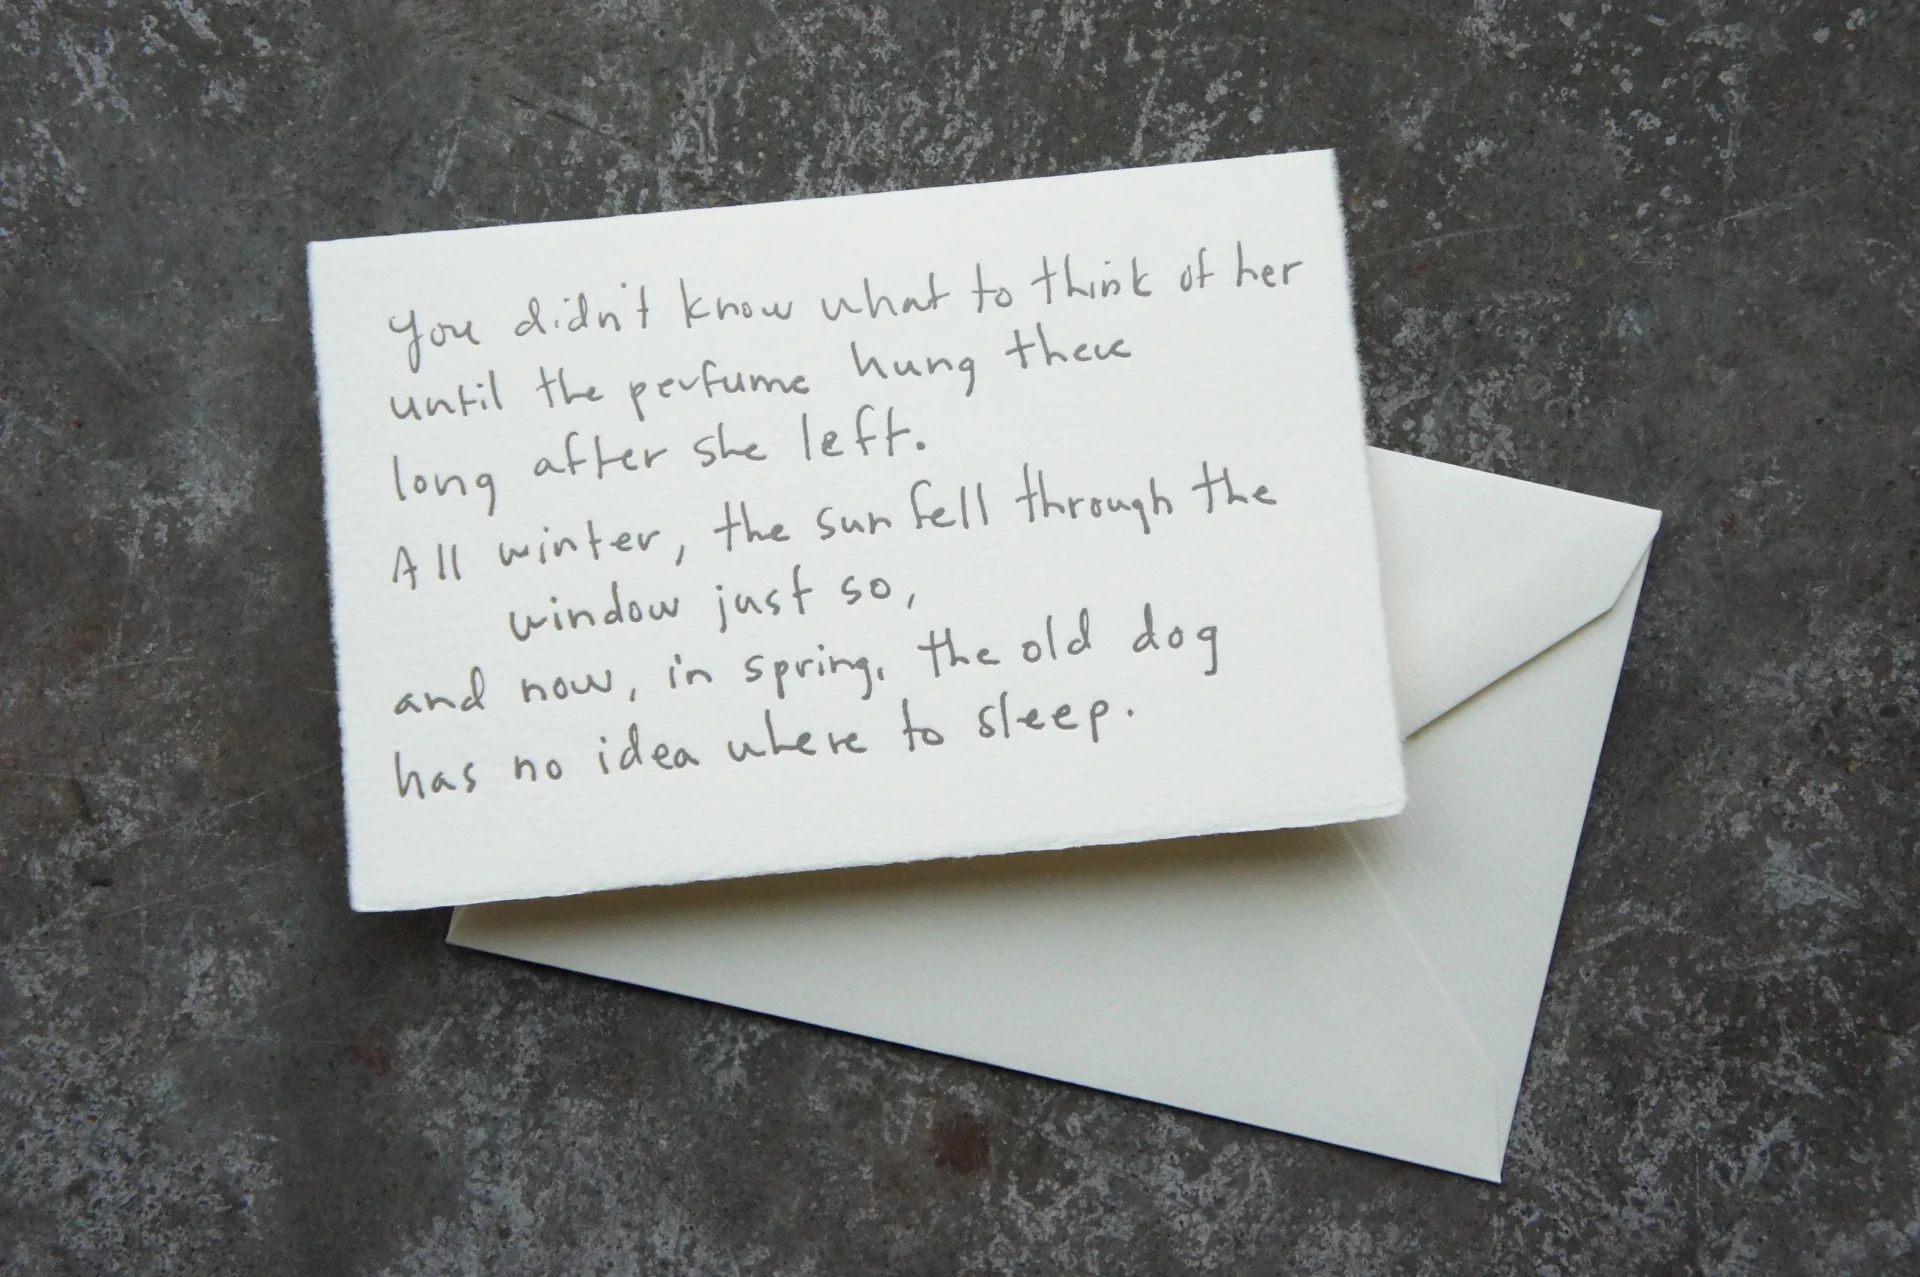 You didn't know what to think of her
until the perfume hung there
long after she left.
All winter, the sun fell through the
window just so,
and now, in spring, the old dog
has no idea where to sleep.